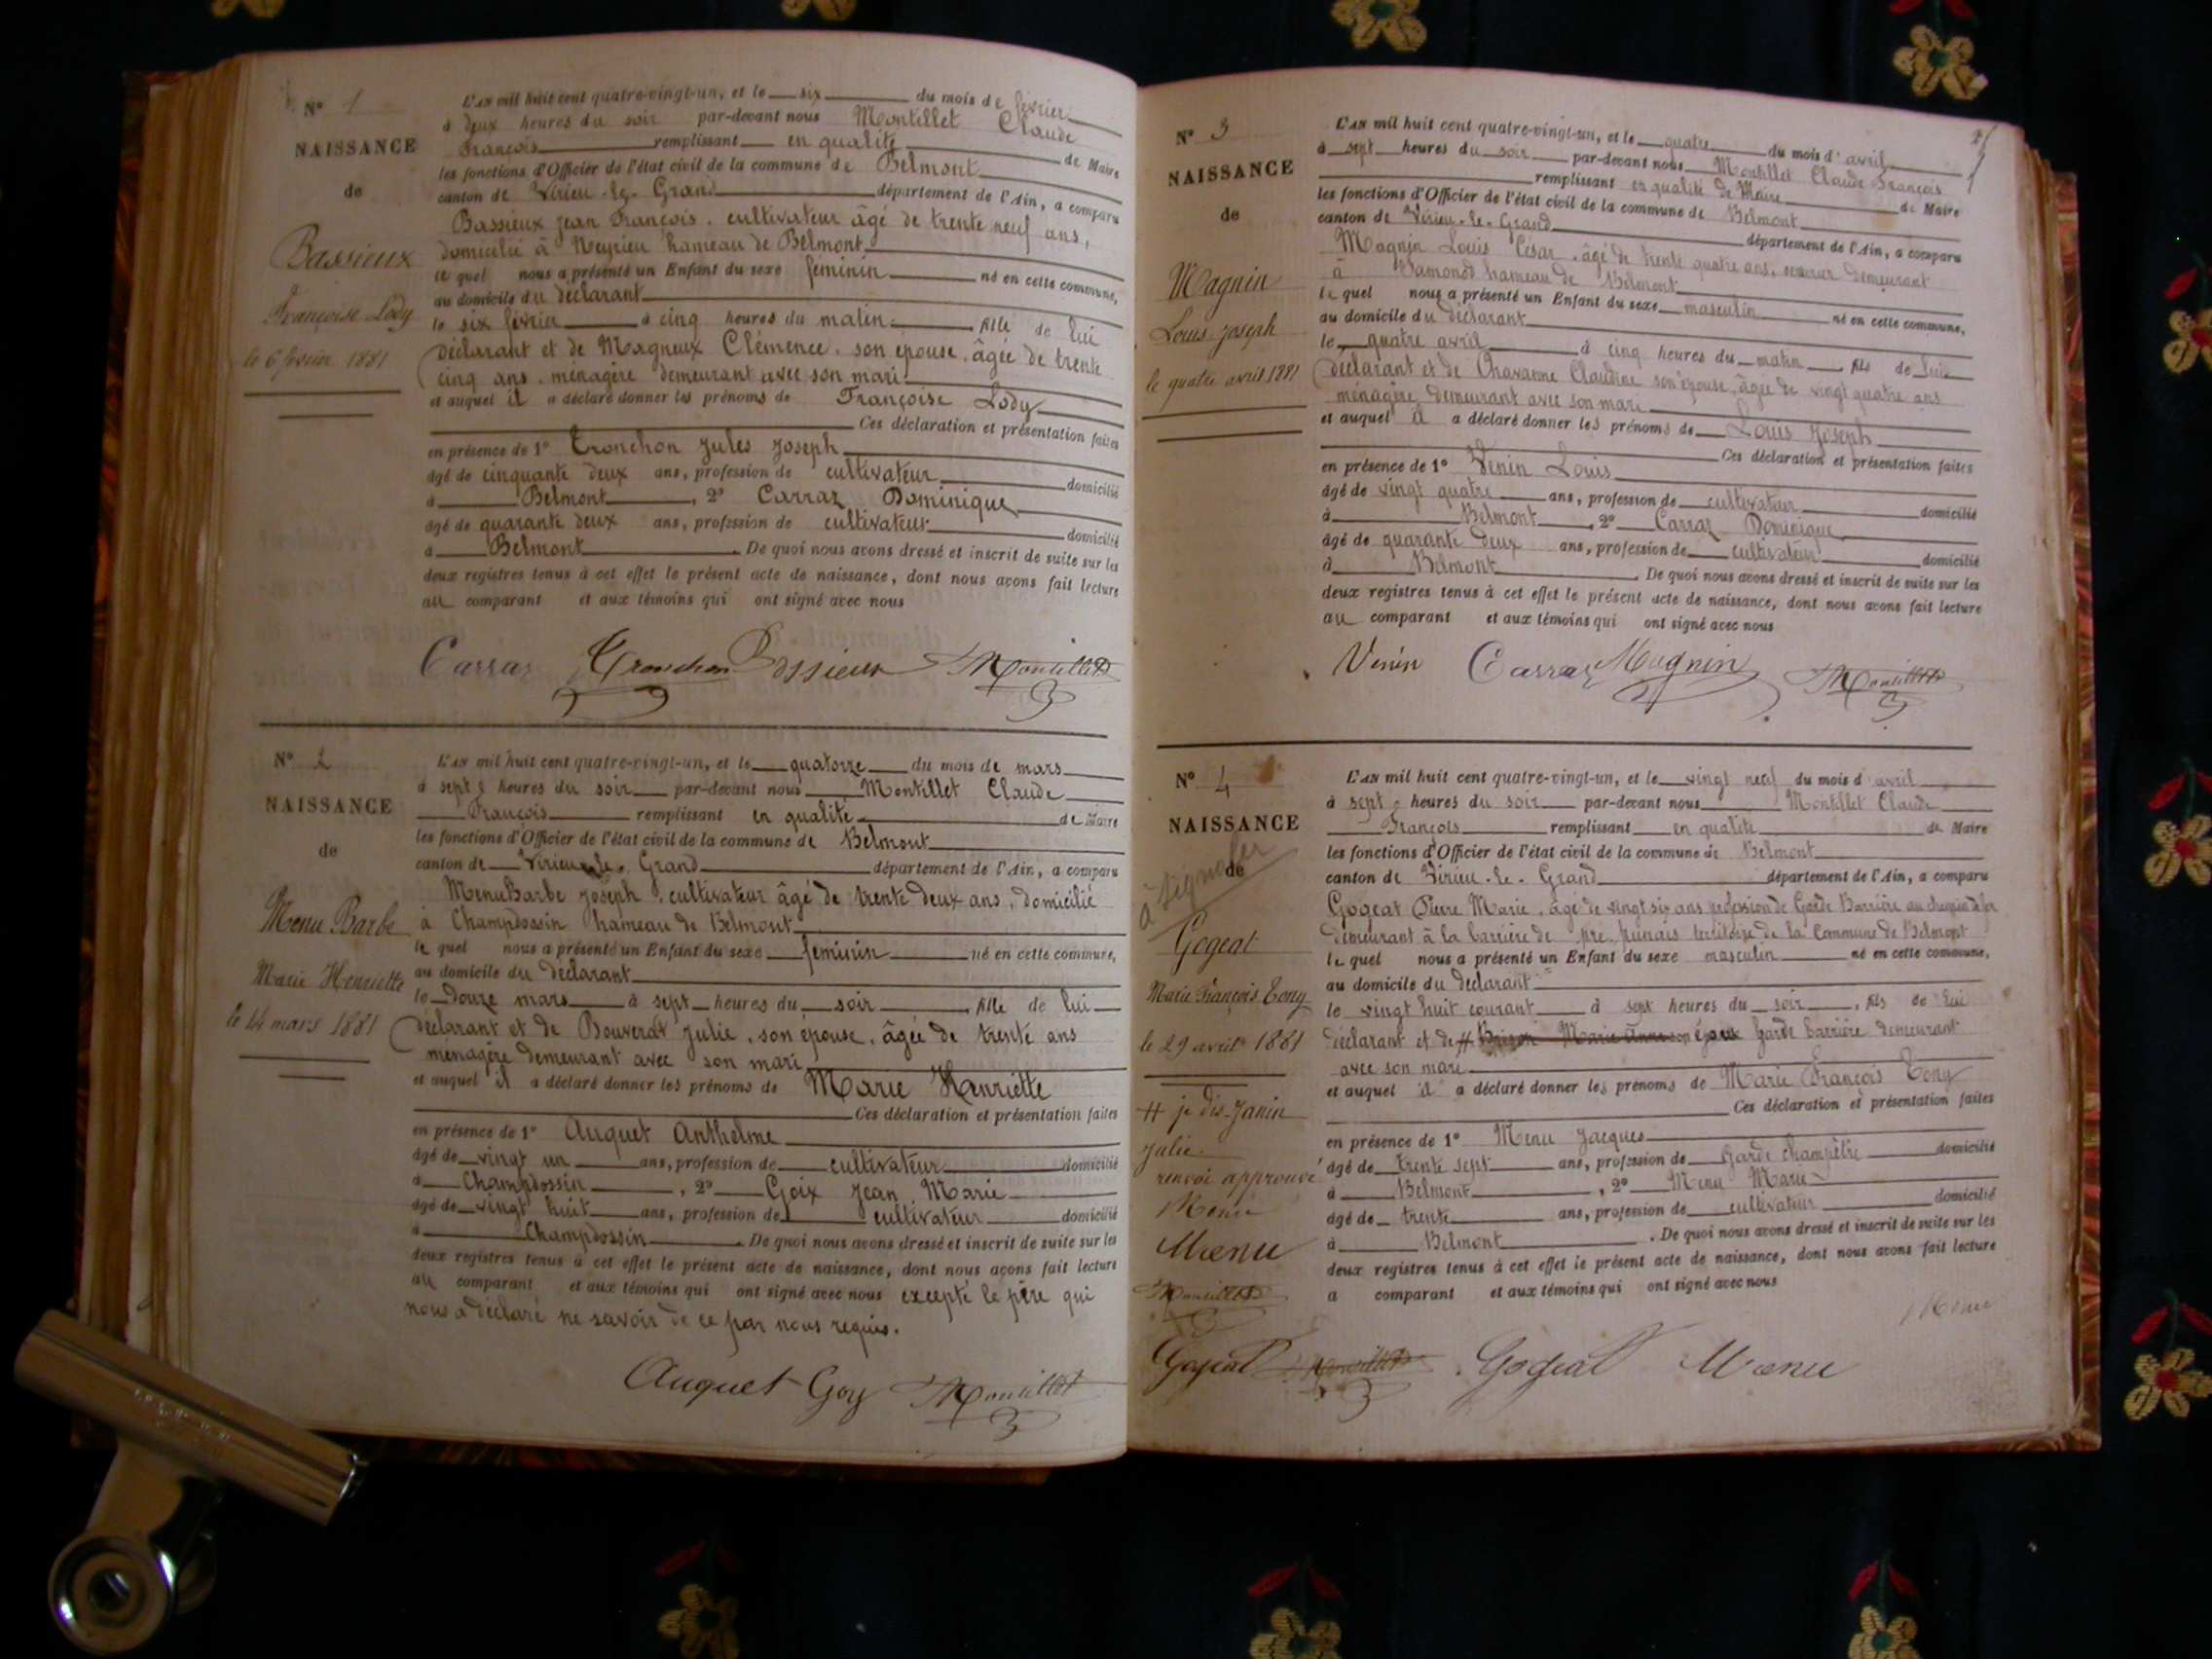 N° 1
NAISSANCE
de
Bassieux
Françoise Lody
le 6 février 1881
L'AN mil huit cent quatre-vingt-un, et le six du mois de février
à deux heures du soir par-devant nous Montillet Claude
François remplissant en qualité de Maire
les fonctions d'Officier de l'état civil de la commune de Belmont
canton de Virieu-le-Grand département de l'Ain, a comparu
Bassieux Jean François, cultivateur âgé de trente neuf ans,
domicilié à Neyrieu hameau de Belmont
le quel nous a présenté un Enfant du sexe féminin né en cette commune,
au domicile du déclarant
le six février à cinq heures du matin fille de lui
déclarant et de Magneux Clémence, son épouse, âgée de trente
cinq ans, ménagère demeurant avec son mari
et auquel il a déclaré donner les prénoms de Françoise Lody
Ces déclaration et présentation faites
en présence de 1° Tronchon Jules Joseph
âgé de cinquante deux ans, profession de cultivateur domicilié
à Belmont, 2° Carraz Dominique
âgé de quarante deux ans, profession de cultivateur domicilié
à Belmont. De quoi nous avons dressé et inscrit de suite sur les
deux registres tenus à cet effet le présent acte de naissance, dont nous avons fait lecture
au comparant et aux témoins qui ont signé avec nous
Carraz Tronchon Bassieux Montillet
N° 2
NAISSANCE
de
Menu Barbe
Marie Henriette
le 14 mars 1881
L'AN mil huit cent quatre-vingt-un, et le quatorze du mois de mars
à sept heures du soir par-devant nous Montillet Claude
François remplissant en qualité de Maire
les fonctions d'Officier de l'état civil de la commune de Belmont
canton de Virieu-le-Grand département de l'Ain, a comparu
Menu Barbe Joseph, cultivateur âgé de trente deux ans, domicilié
à Champdossin hameau de Belmont
le quel nous a présenté un Enfant du sexe féminin né en cette commune,
au domicile du déclarant
le douze mars à sept heures du soir, fille de lui
déclarant et de Bouverat Julie, son épouse, âgée de trente ans
ménagère demeurant avec son mari
et auquel il a déclaré donner les prénoms de Marie Henriette
Ces déclaration et présentation faites
en présence de 1° Auquet Anthelme
âgé de vingt un ans, profession de cultivateur domicilié
à Champdossin, 2° Goix Jean Marie
âgé de vingt huit ans, profession de cultivateur domicilié
à Champdossin. De quoi nous avons dressé et inscrit de suite sur les
deux registres tenus à cet effet le présent acte de naissance, dont nous avons fait lecture
au comparant et aux témoins qui ont signé avec nous excepté le père qui
nous a déclaré ne savoir de ce par nous requis.
Auquet Goy Montillet
N° 3
NAISSANCE
de
Magnin
Louis Joseph
le quatre avril 1881
L'AN mil huit cent quatre-vingt-un, et le quatre du mois d'avril
à sept heures du soir par-devant nous Montillet Claude François
remplissant en qualité de Maire de Maire
les fonctions d'Officier de l'état civil de la commune de Belmont
canton de Virieu-le-Grand département de l'Ain, a comparu
Magnin Louis César, âgé de trente quatre ans, demeurant
à hameau de Belmont
le quel nous a présenté un Enfant du sexe masculin né en cette commune,
au domicile du déclarant
le quatre avril à cinq heures du matin fils de lui
déclarant et de Chavanne Claudine son épouse, âgée de vingt quatre ans
ménagère, demeurant avec son mari
et auquel il a déclaré donner les prénoms de Louis Joseph
Ces déclaration et présentation faites
en présence de 1° Venin Louis
âgé de vingt quatre ans, profession de cultivateur domicilié
à Belmont, 2° Carraz Dominique
âgé de quarante deux ans, profession de cultivateur domicilié
à Belmont. De quoi nous avons dressé et inscrit de suite sur les
deux registres tenus à cet effet le présent acte de naissance, dont nous avons fait lecture
au comparant et aux témoins qui ont signé avec nous
Venin Carraz Magnin Montillet
N° 4
NAISSANCE
de
à signaler
Gogeat
Marie François Tony
le 29 avril 1881
# je dis Janin
Julie
renvoi approuvé
Menu
Mænu
Montillet
L'AN mil huit cent quatre-vingt-un, et le vingt neuf du mois d'avril
à sept heures du soir par-devant nous Montillet Claude
François remplissant en qualité de Maire
les fonctions d'Officier de l'état civil de la commune de Belmont
canton de Virieu-le-Grand département de l'Ain, a comparu
Gogeat Pierre Marie, âgé de vingt six ans profession de Garde Barrière au chemin de fer
demeurant à la barrière de pré punais territoire de la Commune de Belmont
le quel nous a présenté un Enfant du sexe masculin né en cette commune,
au domicile du déclarant
le vingt huit courant à sept heures du soir, fils de lui
déclarant et de # Marie Anne son épouse garde barrière demeurant
avec son mari
et auquel il a déclaré donner les prénoms de Marie François Tony
Ces déclaration et présentation faites
en présence de 1° Menu Jacques
âgé de trente sept ans, profession de Garde champêtre domicilié
à Belmont, 2° Menu Marie
âgé de trente ans, profession de cultivateur domicilié
à Belmont. De quoi nous avons dressé et inscrit de suite sur les
deux registres tenus à cet effet le présent acte de naissance, dont nous avons fait lecture
a comparant et aux témoins qui ont signé avec nous
Menu
Gogeat Montillet Gogeat Mænu